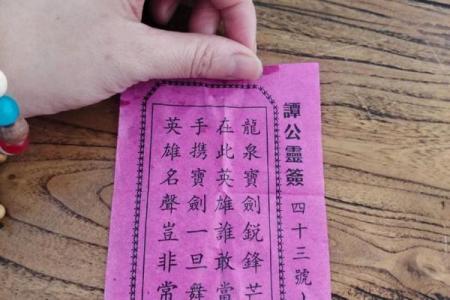 譚公靈簽 四十三號
龍泉寶劍銳鋒芒
在此英雄誰敢當
手携寶劍一旦舞
英雄名聲豈非常